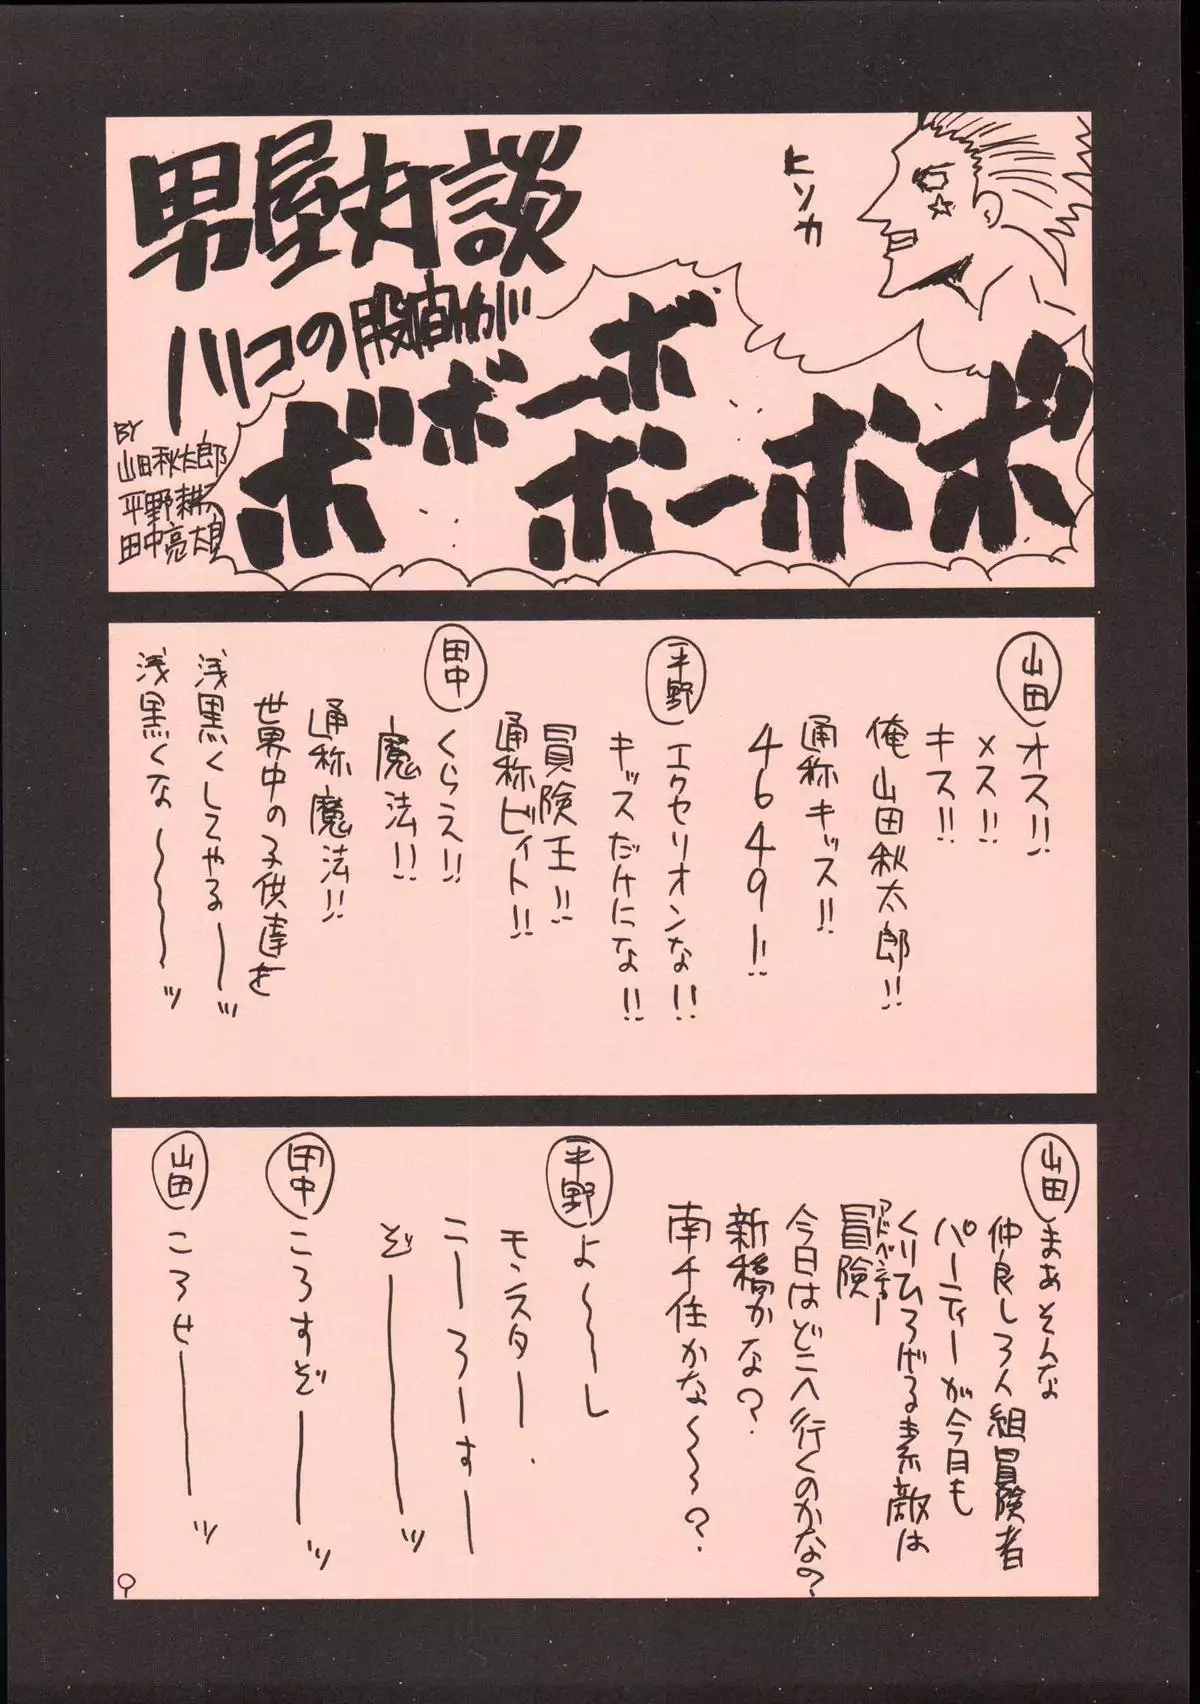 男屋対談
ヒソカ
ハリコの股間が
ボボボーボ
ボーボボ
BY
山田秋太郎
平野耕太
田中亮太郎
山田
オス!!
メス!!
キス!!
俺山田秋太郎!!
通称キッス!!
4649ー!!
平野
エクセリオンな!!
キッスだけにな!!
冒険王!!
通称ビィト!!
田中
くらえ!!
魔法!!
通称魔法!!
世界中の子供達を
浅黒くしてやるー〜ッ
浅黒くな〜〜〜ッ
山田
まあそんな
仲良し3人組冒険者
パーティーが今日も
くりひろげる素敵な
アドベンチャー
冒険
今日はどこへ行くのかな?
新橋かな?
南千住かな〜〜?
平野
よ〜〜し
モンスター
こーろーすー
ぞーーッ
田中
ころすぞーーッ
山田
ころせーーッ